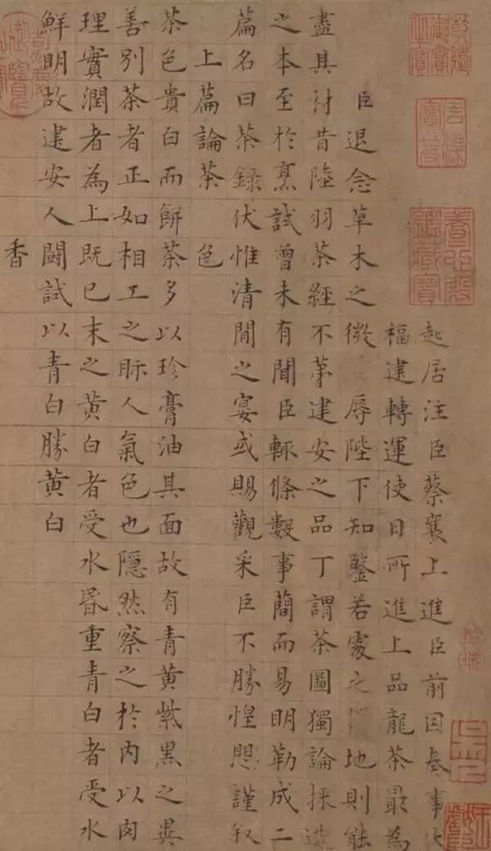 起居注臣蔡襄上進臣前因奏事伏
福建轉運使日所進上品龍茶最為
臣退念草木之微辱陛下知鑒若處之地則能
盡其材昔陸羽茶經不苐建安之品丁謂茶圖獨論採造
之本至於烹試曾未有聞臣輒條數事簡而易明勒成二
篇名曰茶錄伏惟清閒之宴或賜觀采臣不勝惶懼謹叙
上篇論茶 色
茶色貴白而餅茶多以珍膏油其面故有青黃紫黑之異
善別茶者正如相工之眎人氣色也隱然察之於內以肉
理實潤者為上既已末之黃白者受水昏重青白者受水
鮮明故建安人鬪試以青白勝黃白
香